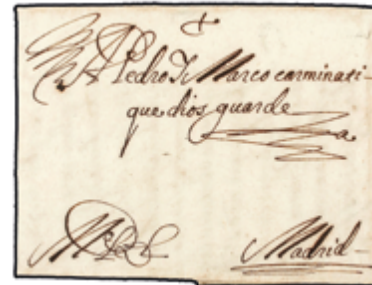 A Pedro Marco carminati
que dios guarde
Madrid